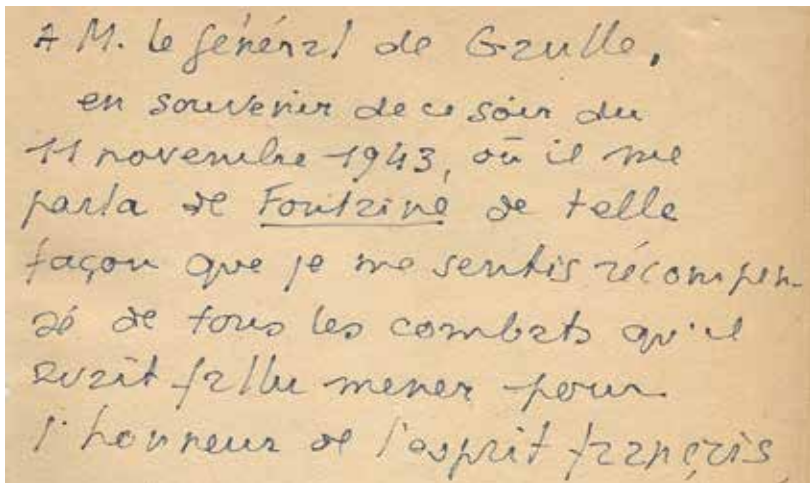 A M. le Général de Gaulle,
en souvenir de ce soir du
11 novembre 1943, où il me
parla de Fontaine de telle
façon que je me sentis récompen-
sé de tous les combats qu'il
avait fallu mener pour
l'honneur de l'esprit français,